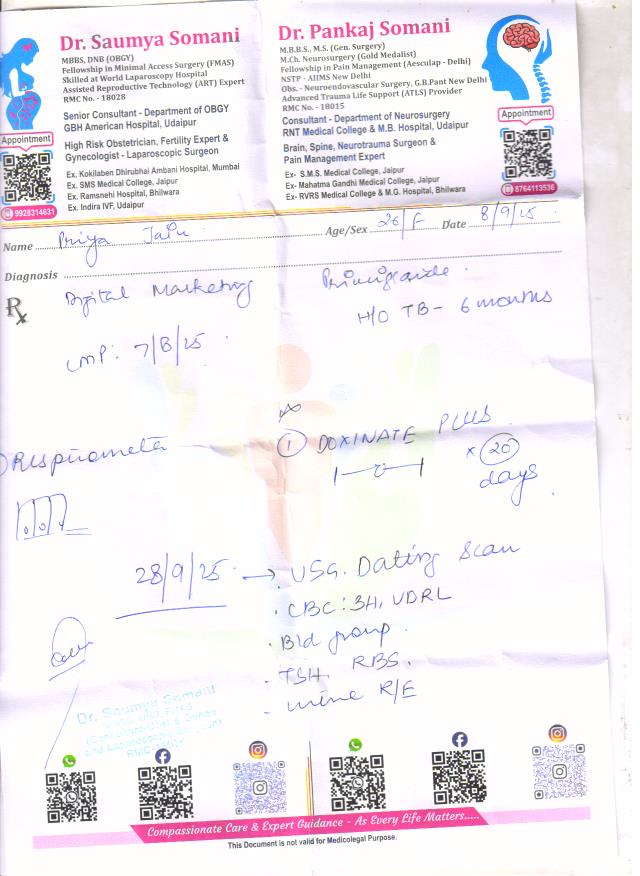 Dr. Saumya Somani
MBBS, DNB (OBGY)
Fellowship in Minimal Access Surgery (FMAS)
Skilled at World Laparoscopy Hospital
Assisted Reproductive Technology (ART) Expert
RMC No. - 18028
Senior Consultant - Department of OBGY
GBH American Hospital, Udaipur
High Risk Obstetrician, Fertility Expert &
Gynecologist - Laparoscopic Surgeon
Ex. Kokilaben Dhirubhai Ambani Hospital, Mumbai
Ex. SMS Medical College, Jaipur
Ex. Ramsnehi Hospital, Bhilwara
Ex. Indira IVF, Udaipur
Appointment
9928314631
Dr. Pankaj Somani
M.B.B.S., M.S. (Gen. Surgery)
M.Ch. Neurosurgery (Gold Medalist)
Fellowship in Pain Management (Aesculap - Delhi)
NSTP - AIIMS New Delhi
Obs. - Neuroendovascular Surgery, G.B.Pant New Delhi
Advanced Trauma Life Support (ATLS) Provider
RMC No. - 18015
Consultant - Department of Neurosurgery
RNT Medical College & M.B. Hospital, Udaipur
Brain, Spine, Neurotrauma Surgeon &
Pain Management Expert
Ex- S.M.S. Medical College, Jaipur
Ex- Mahatma Gandhi Medical College, Jaipur
Ex- RVRS Medical College & M.G. Hospital, Bhilwara
Appointment
8764113536
Name Priya Jain Age/Sex 26/F Date 8/9/25
Diagnosis
Rx Digital Marketing Primigravide
H/O TB - 6 months
LMP: 7/8/25
① DOXINATE PLUS
x 20 days
28/9/25 → USG. Dating Scan
. CBC: 3H, VDRL
. Bld group.
. TSH, RBS.
. urine R/E
Dr. Saumya Somani
Compassionate Care & Expert Guidance - As Every Life Matters.....
This Document is not valid for Medicolegal Purpose.